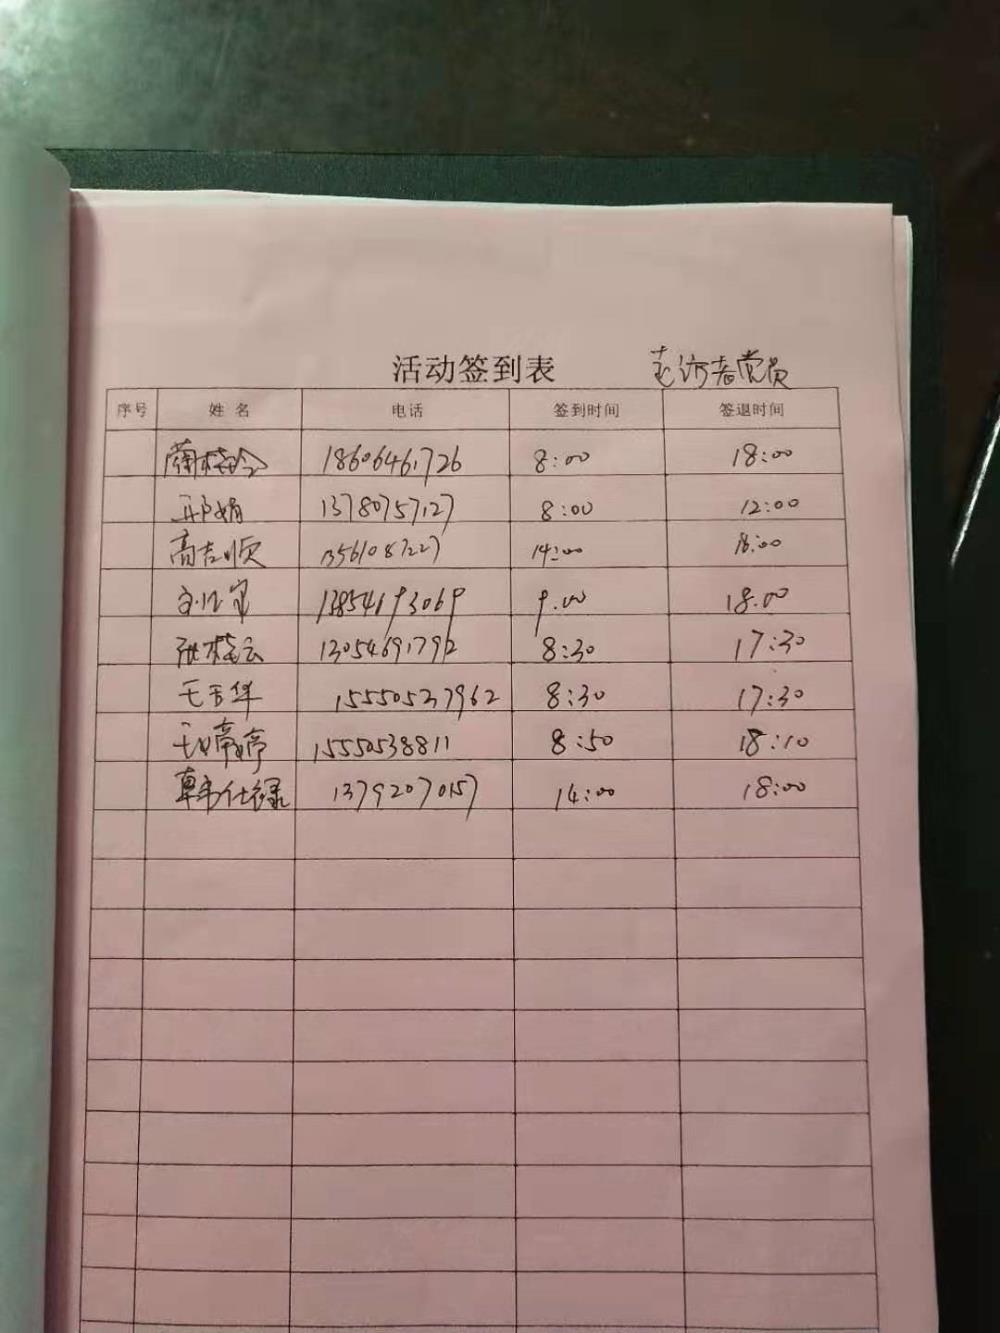 活动签到表 走访老党员
序号 姓名 电话 签到时间 签退时间
18606461726 8:00 18:00
邢娟 13780757127 8:00 12:00
高吉顺 13561087227 14:00 18:00
13854693069 9.00 18.00
张桂云 13054691792 8:30 17:30
王玉华 15550527962 8:30 17:30
王婷婷 15550538811 8:50 18:10
韩仕禄 13792070157 14:00 18:00